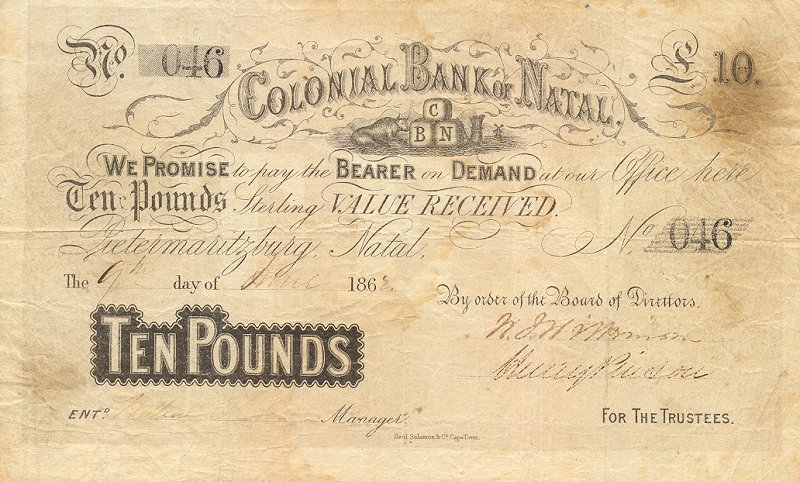 No. 046
COLONIAL BANK OF NATAL.
£ 10.
C
B N
WE PROMISE to pay the BEARER on DEMAND at our Office here
Ten Pounds Sterling VALUE RECEIVED.
Pietermaritzburg, Natal,
No 046
The 9th day of 1862.
By order of the Board of Direttors,
TEN POUNDS
Henry
ENTD.
Manager.
FOR THE TRUSTEES.
Saul Solomon & Co. Cape Town.